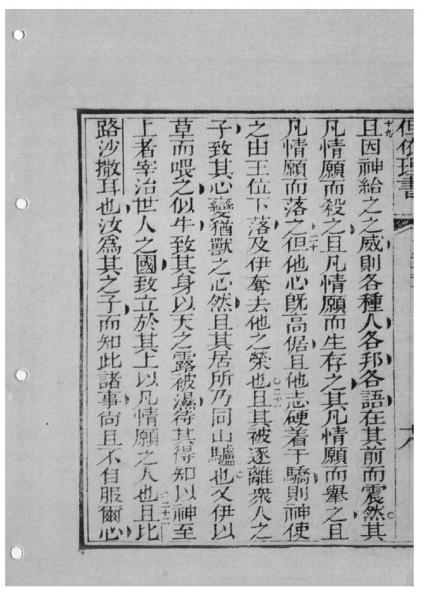 但依理書
十九
且因神給之之威則各種人各邦各語在其前而震然其
凡情願而殺之且凡情願而生存之其凡情願而舉之且
凡情願而落之二十但他心既高倨且他志硬着于驕則神使
之由王位下落及伊奪去他之榮也二十一且其被逐離衆人之
子致其心變猶獸之心然且其居所乃同山驢也又伊以
草而喂之似牛致其身以天之露被濕待其得知以神至
上者宰治世人之國致立於其上以凡情願之人也二十二且比
路沙撒耳也汝爲其之子而知此諸事尙且不自服爾心